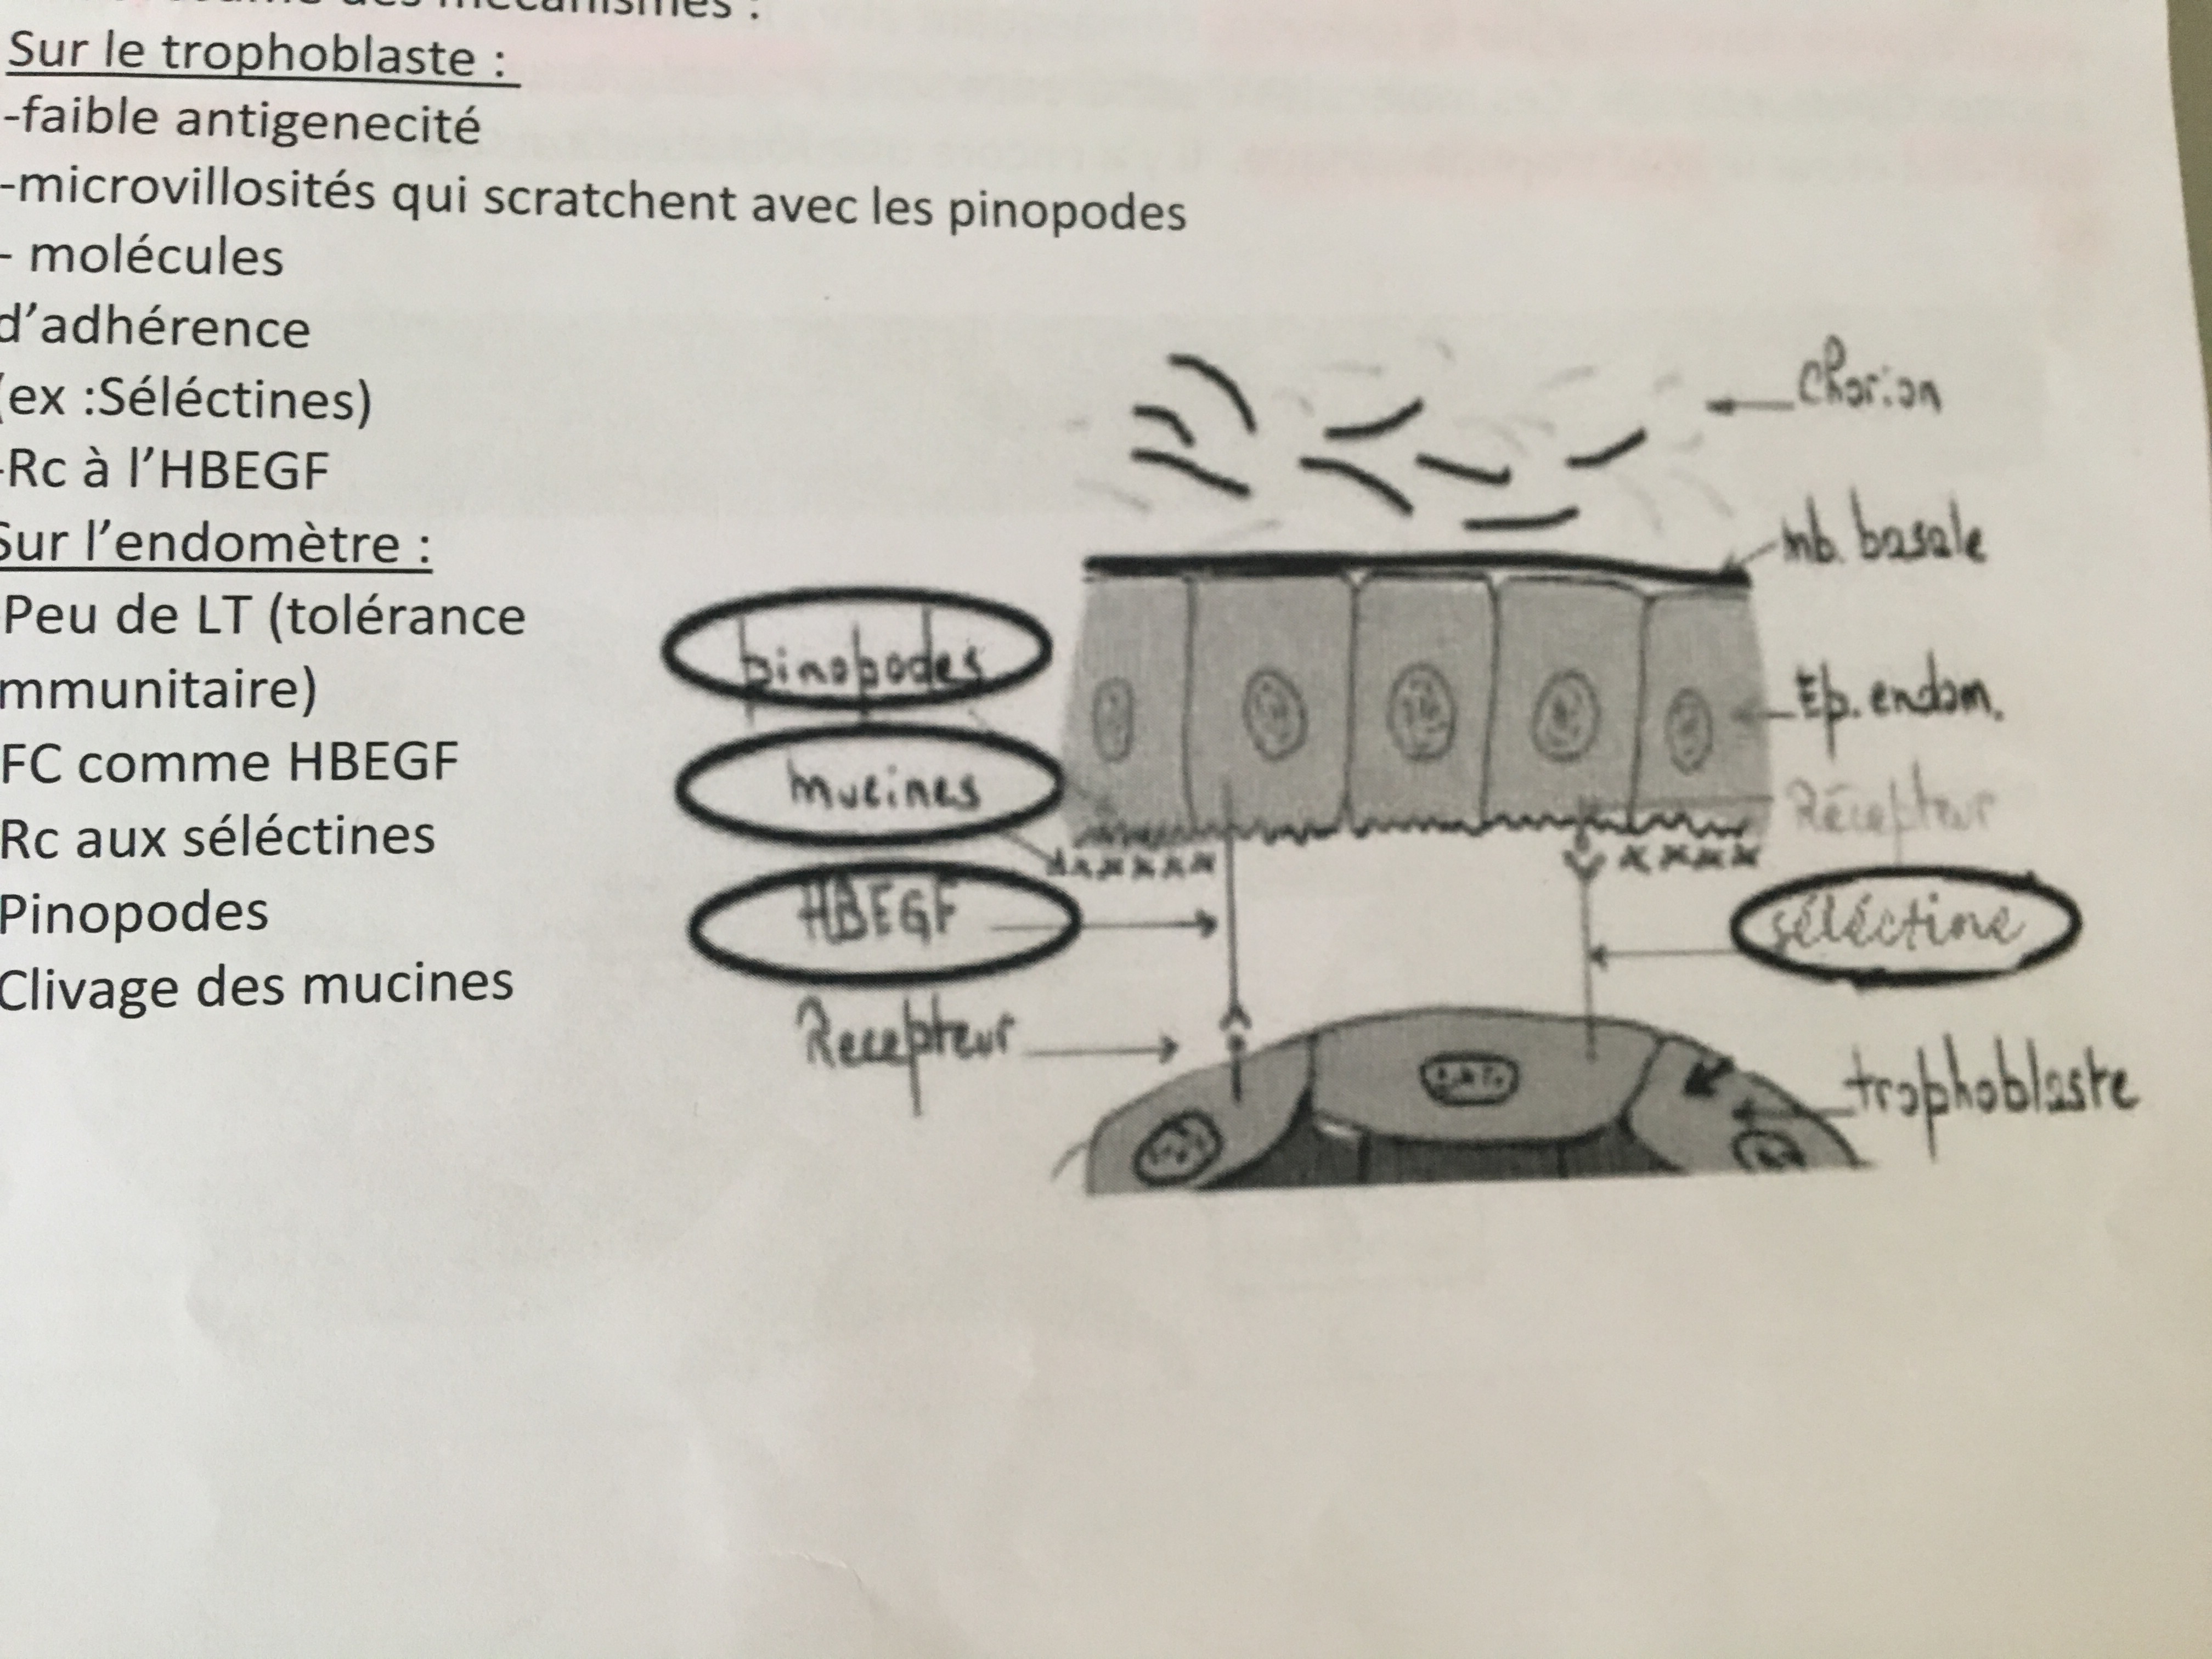 des mécanismes :
Sur le trophoblaste :
-faible antigenecité
-microvillosités qui scratchent avec les pinopodes
- molécules
d’adhérence
(ex :Séléctines)
-Rc à l’HBEGF
Sur l’endomètre :
Peu de LT (tolérance
mmunitaire)
FC comme HBEGF
Rc aux séléctines
Pinopodes
Clivage des mucines
Chorion
mb. basale
pinopodes
Ep. endom.
mucines
Récepteur
HBEGF
séléctine
Recepteur
trophoblaste